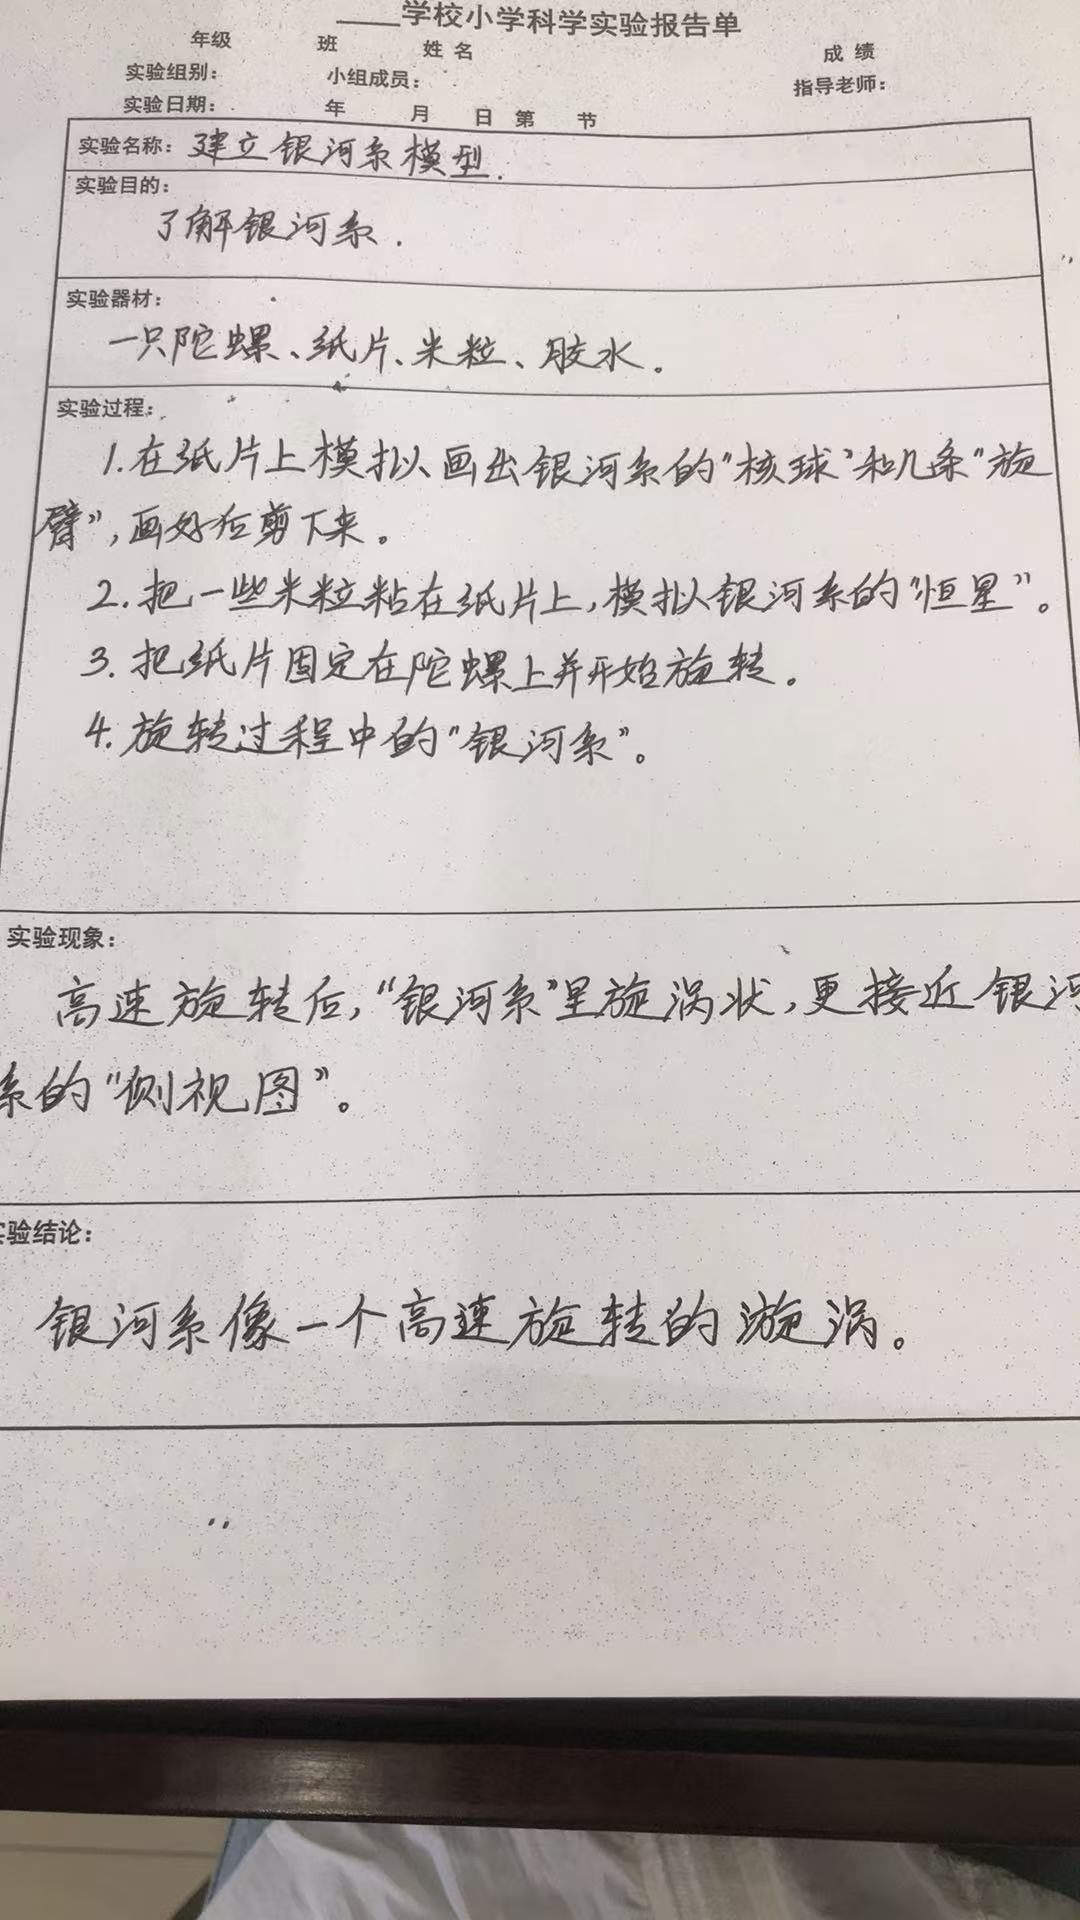 ____学校小学科学实验报告单
年级 班 姓名 成绩
实验组别： 小组成员： 指导老师：
实验日期： 年 月 日 第 节
实验名称：建立银河系模型.
实验目的：
了解银河系.
实验器材：
一只陀螺、纸片、米粒、胶水.
实验过程：
1.在纸片上模拟画出银河系的“核球”和几条“旋
臂”,画好后剪下来。
2.把一些米粒粘在纸片上,模拟银河系的“恒星”。
3.把纸片固定在陀螺上并开始旋转。
4.旋转过程中的“银河系”。
实验现象：
高速旋转后,“银河系”呈旋涡状,更接近银河
系的“侧视图”。
实验结论：
银河系像一个高速旋转的漩涡。